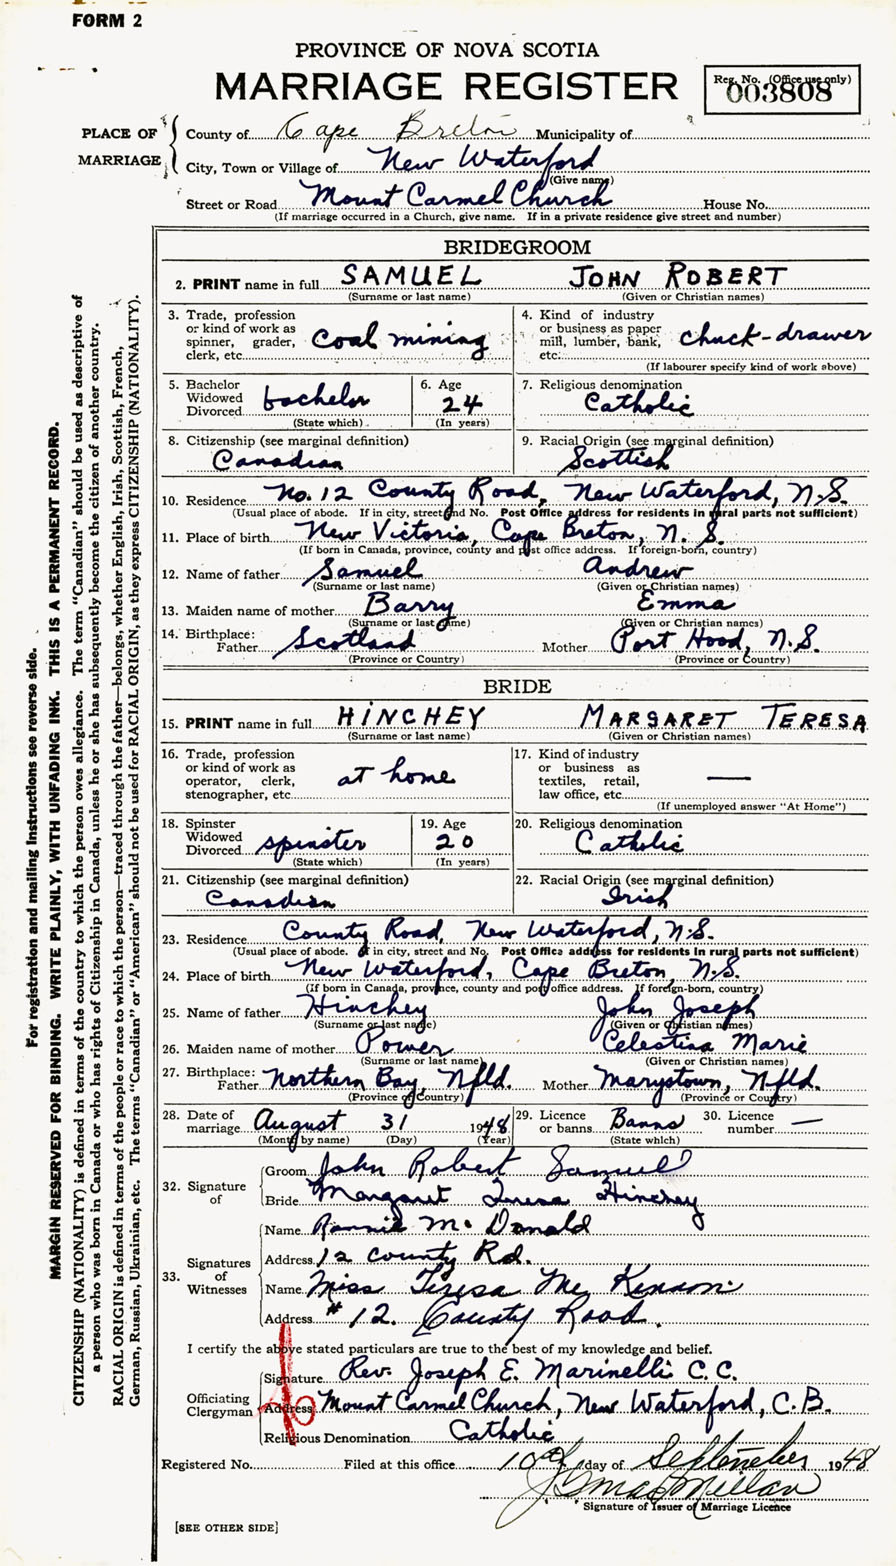 FORM 2
PROVINCE OF NOVA SCOTIA
MARRIAGE REGISTER
Reg. No. (Office use only)
003808
PLACE OF MARRIAGE
County of Cape Breton Municipality of
City, Town or Village of New Waterford
(Give name)
Street or Road Mount Carmel Church House No.
(If marriage occurred in a Church, give name. If in a private residence give street and number)
BRIDEGROOM
2. PRINT name in full SAMUEL JOHN ROBERT
(Surname or last name) (Given or Christian names)
3. Trade, profession or kind of work as spinner, grader, clerk, etc. Coal mining
4. Kind of industry or business as paper mill, lumber, bank, etc. chuck-drawer
(If labourer specify kind of work above)
5. Bachelor Widowed Divorced bachelor
(State which)
6. Age 24
(In years)
7. Religious denomination Catholic
8. Citizenship (see marginal definition) Canadian
9. Racial Origin (see marginal definition) Scottish
10. Residence No. 12 County Road, New Waterford, N.S.
(Usual place of abode. If in city, street and No. Post Office address for residents in rural parts not sufficient)
11. Place of birth New Victoria, Cape Breton, N. S.
(If born in Canada, province, county and post office address. If foreign-born, country)
12. Name of father Samuel Andrew
(Surname or last name) (Given or Christian names)
13. Maiden name of mother Barry Emma
(Surname or last name) (Given or Christian names)
14. Birthplace: Father Scotland Mother Port Hood, N.S.
(Province or Country) (Province or Country)
BRIDE
15. PRINT name in full HINCHEY MARGARET TERESA
(Surname or last name) (Given or Christian names)
16. Trade, profession or kind of work as operator, clerk, stenographer, etc. at home
17. Kind of industry or business as textiles, retail, law office, etc. —
(If unemployed answer "At Home")
18. Spinster Widowed Divorced spinster
(State which)
19. Age 20
(In years)
20. Religious denomination Catholic
21. Citizenship (see marginal definition) Canadian
22. Racial Origin (see marginal definition) Irish
23. Residence County Road, New Waterford, N.S.
(Usual place of abode. If in city, street and No. Post Office address for residents in rural parts not sufficient)
24. Place of birth New Waterford, Cape Breton, N.S.
(If born in Canada, province, county and post office address. If foreign-born, country)
25. Name of father Hinchey John Joseph
(Surname or last name) (Given or Christian names)
26. Maiden name of mother Power Celestina Marie
(Surname or last name) (Given or Christian names)
27. Birthplace: Father Northern Bay, Nfld. Mother Marystown, Nfld.
(Province or Country) (Province or Country)
28. Date of marriage August 31 1948
(Month by name) (Day) (Year)
29. Licence or banns Banns
(State which)
30. Licence number —
32. Signature of
Groom John Robert Samuel
Bride Margaret Teresa Hinchey
33. Signatures of Witnesses
Name Rannie McDonald
Address 12 County Rd.
Name Miss Teresa Mc Kinnon
Address # 12. County Road.
I certify the above stated particulars are true to the best of my knowledge and belief.
Officiating Clergyman
Signature Rev. Joseph E. Marinelli C. C.
Address Mount Carmel Church, New Waterford, C.B.
Religious Denomination Catholic
Registered No. Filed at this office 10th day of September 1948
Signature of Issuer of Marriage Licence
[SEE OTHER SIDE]
For registration and mailing instructions see reverse side.
MARGIN RESERVED FOR BINDING. WRITE PLAINLY, WITH UNFADING INK. THIS IS A PERMANENT RECORD.
CITIZENSHIP (NATIONALITY) is defined in terms of the country to which the person owes allegiance. The term "Canadian" should be used as descriptive of
a person who was born in Canada or who has rights of Citizenship in Canada, unless he or she has subsequently become the citizen of another country.
RACIAL ORIGIN is defined in terms of the people or race to which the person—traced through the father—belongs, whether English, Irish, Scottish, French,
German, Russian, Ukrainian, etc. The terms "Canadian" or "American" should not be used for RACIAL ORIGIN, as they express CITIZENSHIP (NATIONALITY).